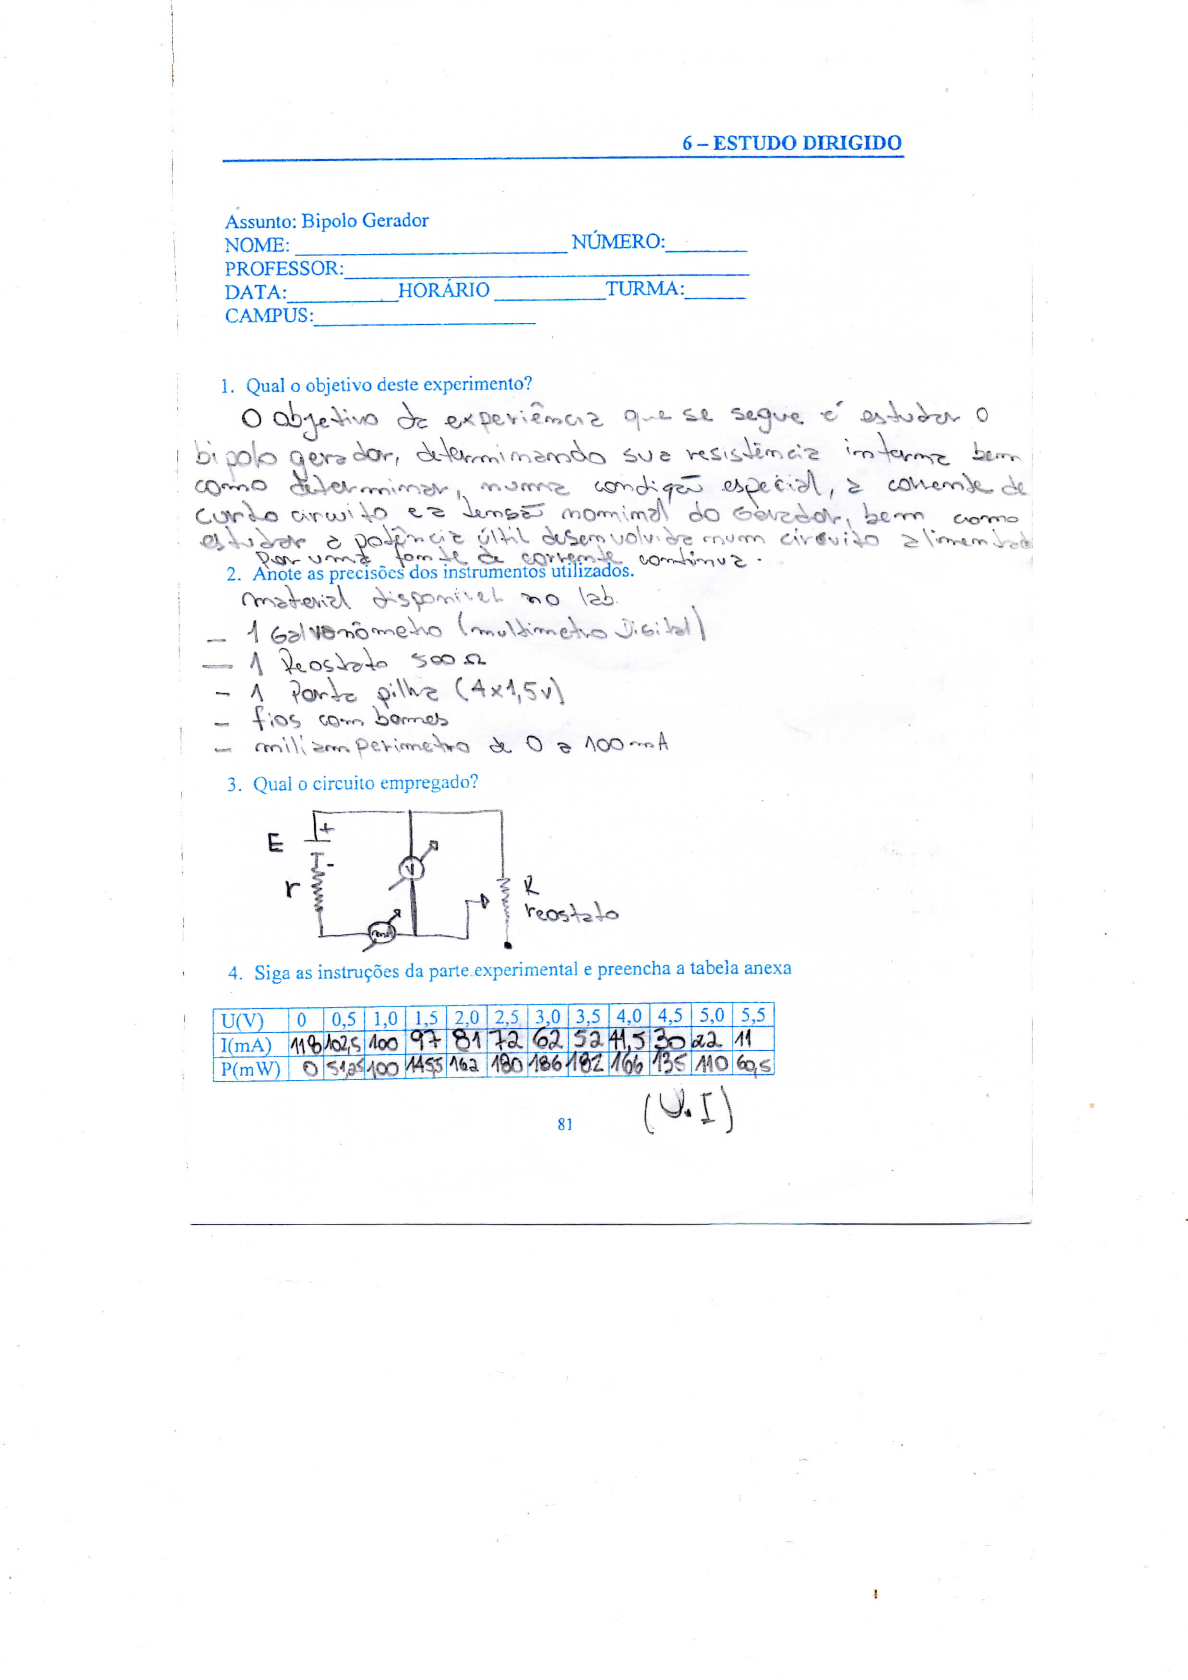 6 – ESTUDO DIRIGIDO
Assunto: Bipolo Gerador
NOME: NÚMERO:
PROFESSOR:
DATA: HORÁRIO TURMA:
CAMPUS:
1. Qual o objetivo deste experimento?
O objetivo da experiência que se segue é estudar o
bipolo gerador, determinando sua resistência interna bem
como determinar, numa condição especial, a corrente de
curto circuito e a tensão nominal do Gerador, bem como
estudar a potência últil desenvolvida num circuito alimentado
por uma fonte de corrente continua.
2. Anote as precisões dos instrumentos utilizados.
material disponivel no lab.
– 1 Galvanômetro (multimetro Digital)
– 1 Reostato 500 Ω
– 1 Porta pilha (4x1,5v)
– fios com bornes
– miliamperimetro de 0 a 100 mA
3. Qual o circuito empregado?
+
E
-
V
r
R
reostato
mA
4. Siga as instruções da parte experimental e preencha a tabela anexa
U(V) 0 0,5 1,0 1,5 2,0 2,5 3,0 3,5 4,0 4,5 5,0 5,5
I(mA) 118 102,5 100 97 81 72 62 52 41,5 30 22 11
P(mW) 0 51,25 100 145,5 162 180 186 182 166 135 110 60,5
(U.I)
81